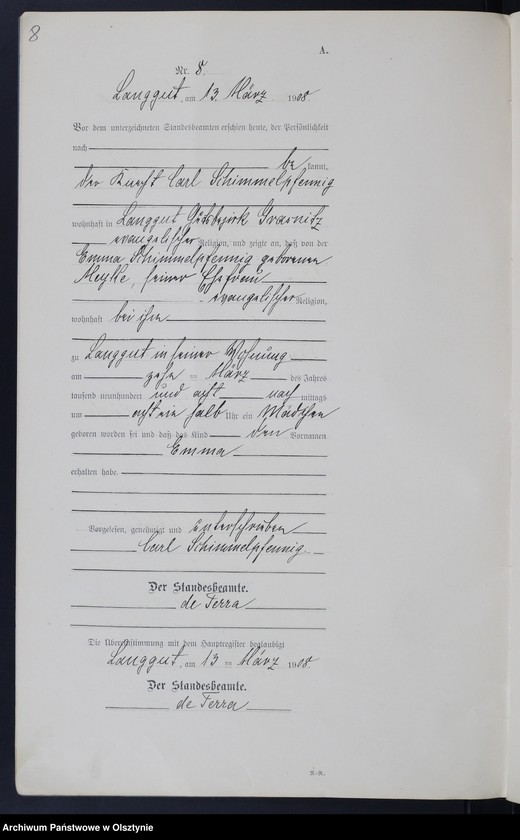 8
A.
Nr. 8.
Langgut, am 13. März 1908.
Vor dem unterzeichneten Standesbeamten erschien heute, der Persönlichkeit
nach
be kannt,
der Knecht Carl Schimmelpfennig
wohnhaft in Langgut Gutsbezirk Grasnitz
evangelischer Religion, und zeigte an, daß von der
Emma Schimmelpfennig geborenen
seiner Ehefrau
evangelischer Religion,
wohnhaft bei ihm
zu Langgut in seiner Wohnung
am zehn ten März des Jahres
tausend neunhundert und acht nach mittags
um acht ein halb Uhr ein Mädchen
geboren worden sei und daß das Kind den Vornamen
Emma
erhalten habe.
Vorgelesen, genehmigt und unterschrieben
Carl Schimmelpfennig
Der Standesbeamte.
de Terra
Die Übereinstimmung mit dem Hauptregister beglaubigt
Langgut, am 13 ten März 1908
Der Standesbeamte.
de Terra
Archiwum Państwowe w Olsztynie